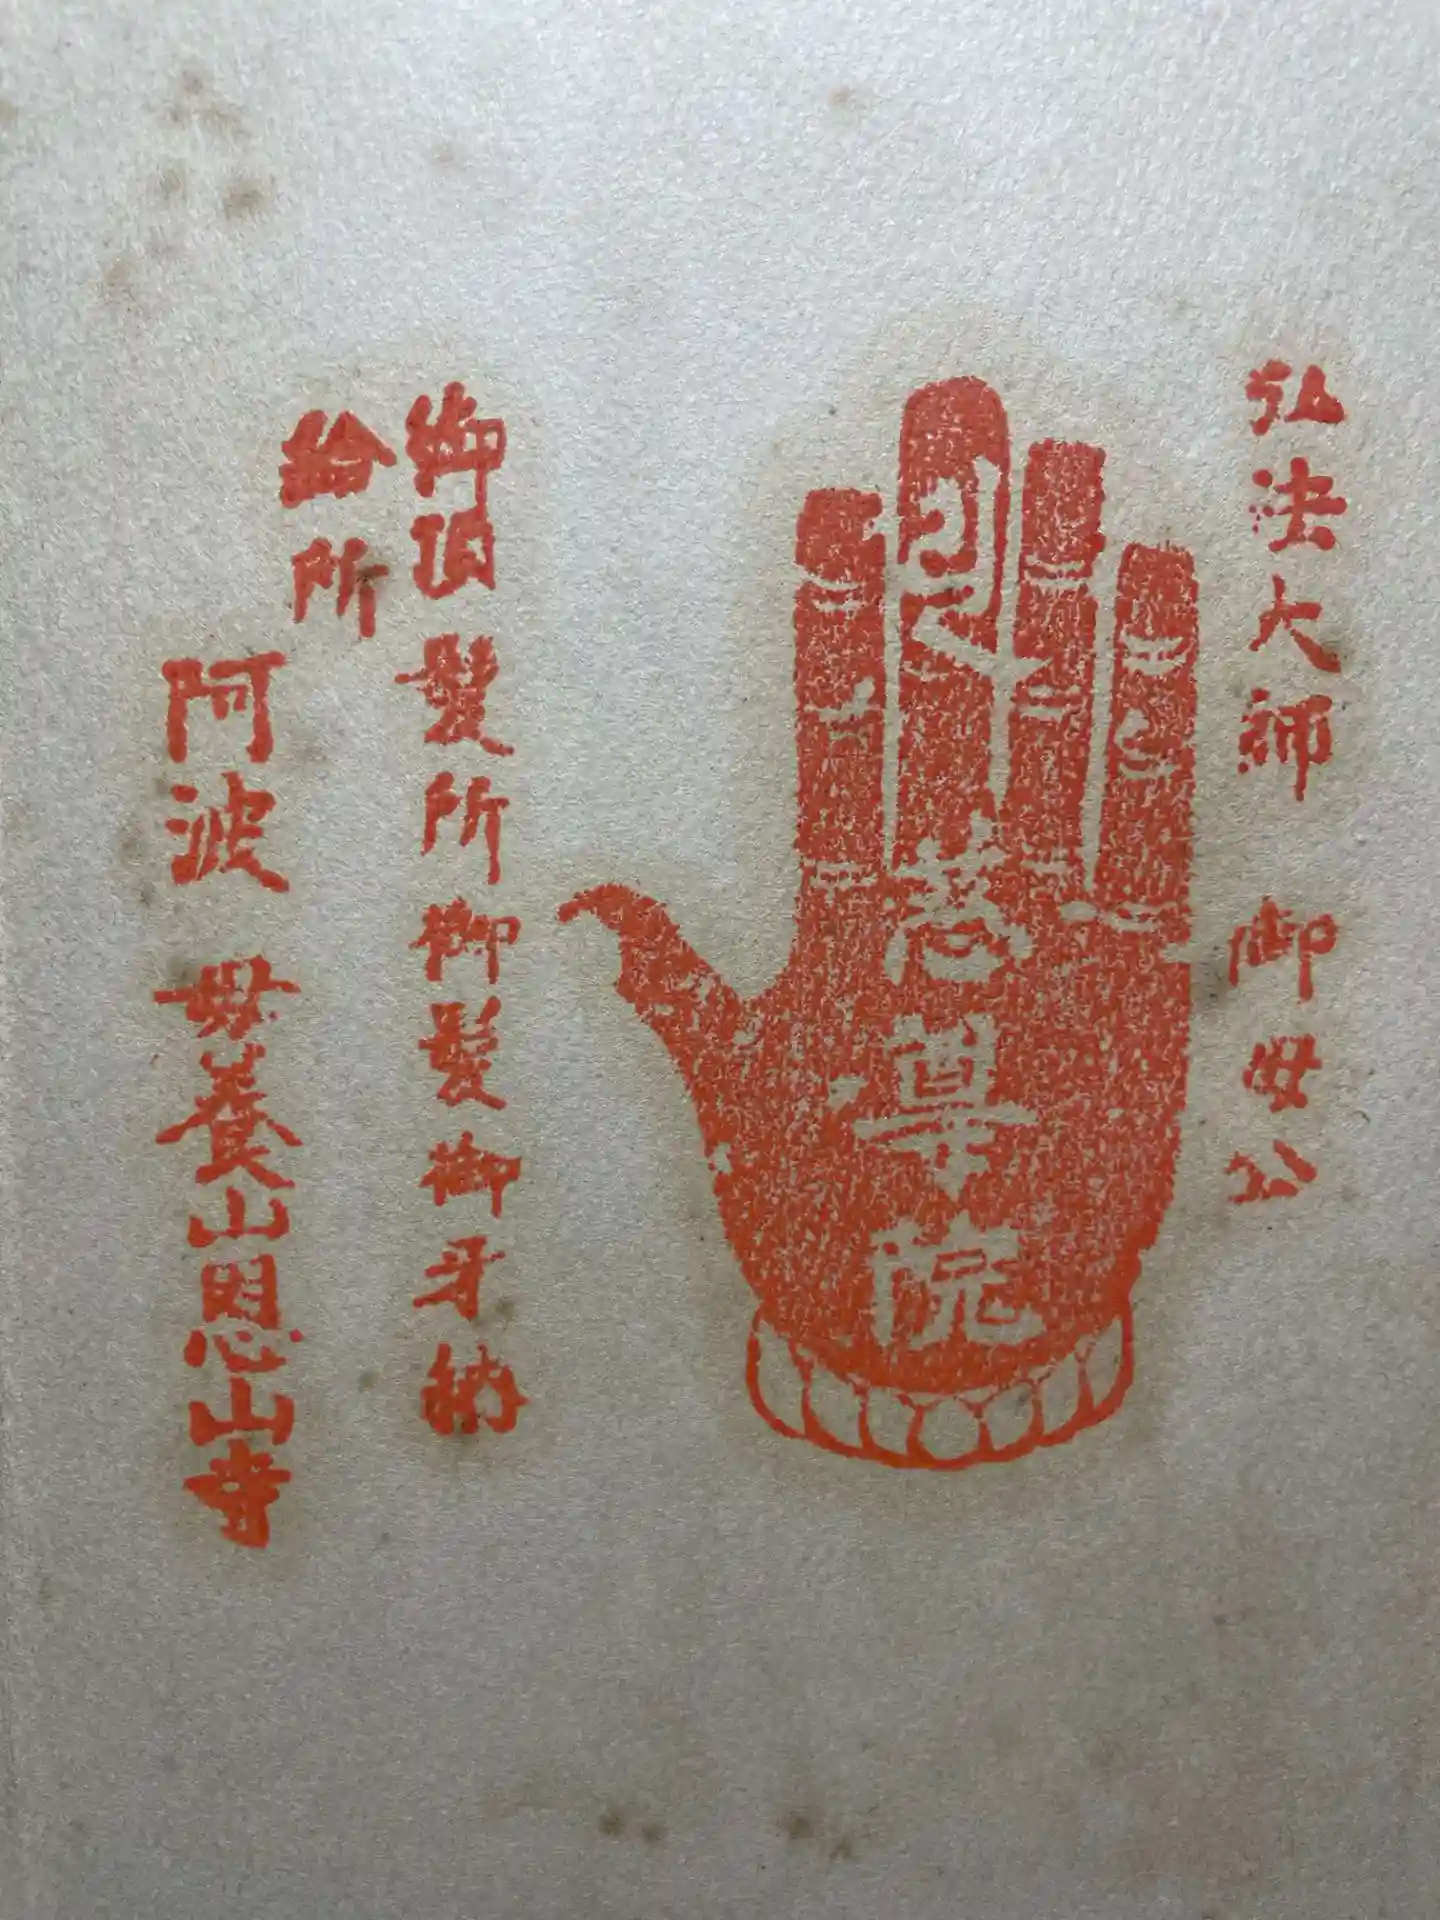 弘法大師 御母公
慈尊院
御頂髪所御髪御牙納
給所
阿波 母養山恩山寺